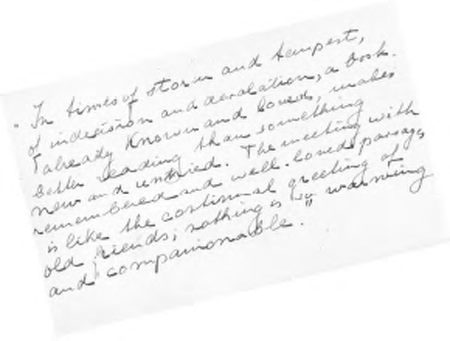 " In times of storm and tempest,
of indecision and desolation, a book
already known and loved, makes
better reading than something
new and untried. The meeting with
remembered and well-loved passages
is like the continual greeting of
old friends; nothing is so warming
and companionable."